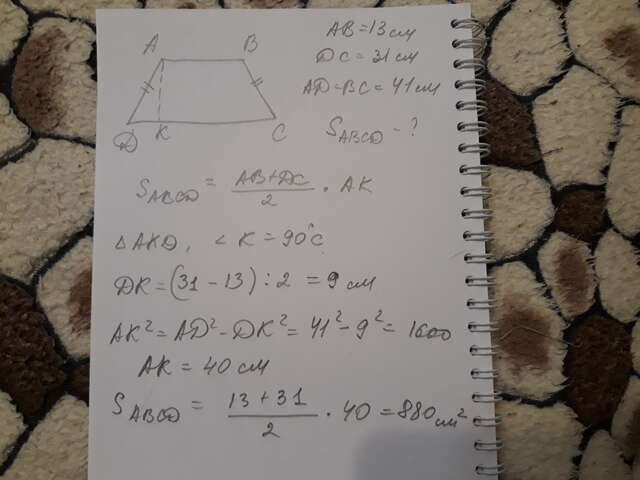 AB = 13 см
DC = 31 см
AD = BC = 41 см
S ABCD - ?
A
B
D
K
C
S ABCD = (AB + DC)/2 · AK
△ AKD, < K = 90°
DK = (31 - 13) : 2 = 9 см
AK² = AD² - DK² = 41² - 9² = 1600
AK = 40 см
S ABCD = (13 + 31)/2 · 40 = 880 см²